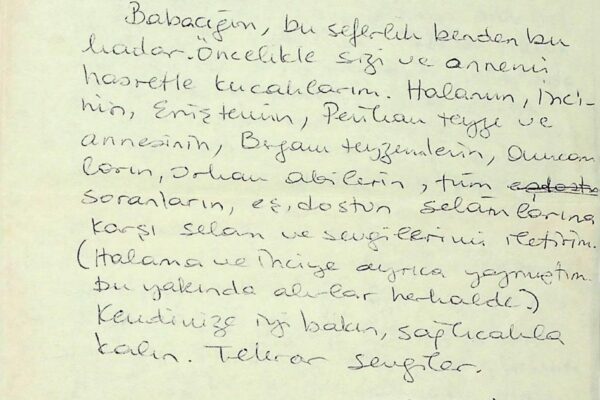 Babacığım, bu seferlik benden bu
kadar. Öncelikle sizi ve annemi
hasretle kucaklarım. Halamın, İnci-
nin, Eniştemin, Perihan teyze ve
annesinin, teyzemlerin, Duncan
ların, Orhan abilerin, tüm
soranların, eş, dostun selâmlarına
karşı selam ve sevgilerimi iletirim.
(Halama ve İnciye ayrıca yazmıştım.
Bu yakında alırlar herhalde.)
Kendinize iyi bakın, sağlıcakla
kalın. Tekrar sevgiler.